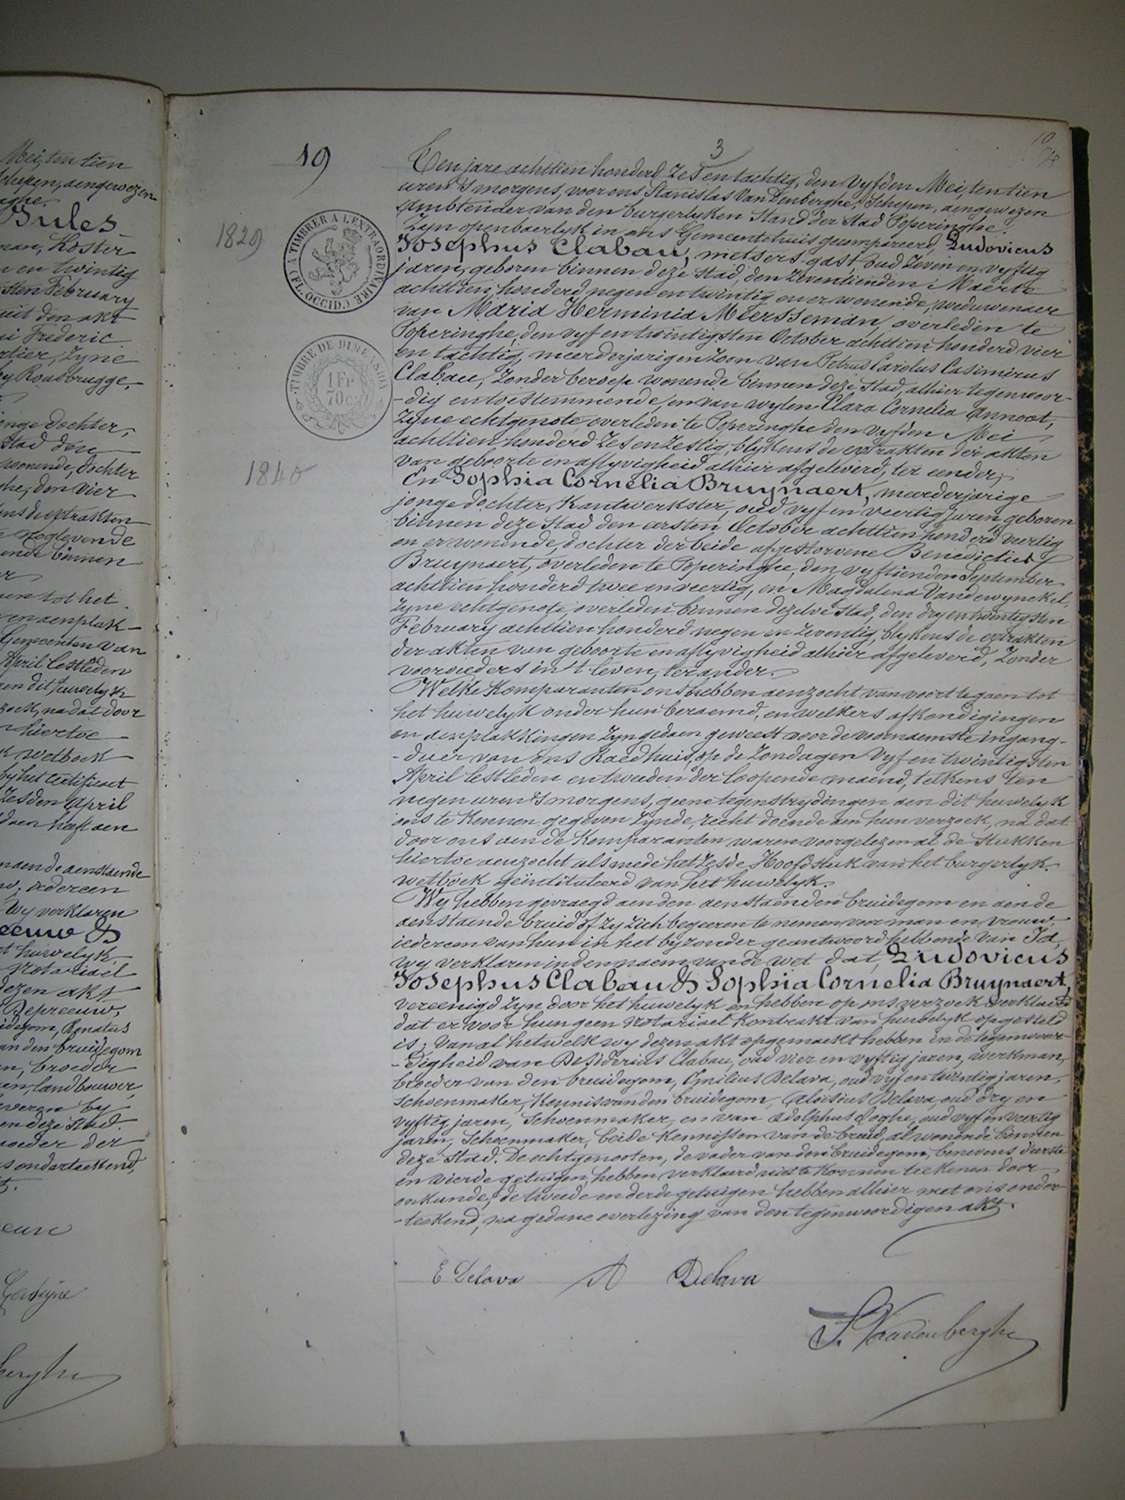 Meij, ten tien
Schepen, aengewezen
Jules
man, Koster
en twintig
sten February
uit den akt
Frederic
Zyne
by Rousbrugge,
19
3
Ten jare achttien honderd Zes en tachtig, den Vyfden Mei, ten tien
uren 's morgens, voor ons Stanislas Van Denberghe, Schepen, aengewezen
Ambtenaer van den burgerlyken Stand der Stad Poperinghe,
1829
Zyn openbaerlyk in ons Gemeentehuis gecompareerd, Ludovicus
A TIMBRER A L'EXTRAORDINAIRE (FL. OCCID.)
Josephus Clabau, metsers gast, oud Zeven en vyftig
jaren, geboren binnen deze Stad, den Zeventienden Maerte
achttien honderd negen en twintig en er wonende, weduwenaer
van Maria Herminia Meersseman, overleden te
Poperinghe, den vyf en twintigsten October achttien honderd vier
en tachtig, meerderjarigen Zoon van Petrus Carolus Casimirus
TIMBRE DE DIMENSION
1 FR
70 C
Clabau, Zonder beroep wonende binnen deze Stad, alhier tegenwoor-
-dig en toestemmende, en van wylen Clara Cornelia Annoot,
Zyne echtgenote overleden te Poperinghe den vyfden Mei
achttien honderd Zes en Zestig, blykens de extrakten der akten
van geboorte en aflyvigheid alhier afgeleverd, ter eender,
1840
En Sophia Cornelia Bruynaert, meerderjarige
jonge dochter, Kantwerkster, oud vyf en veertig jaren, geboren
binnen deze Stad den eersten October achttien honderd veertig
en er wonende, dochter der beide afgestorvene Benedictus
Bruynaert, overleden te Poperinghe, den vyftienden September
achttien honderd twee en veertig, en Magdalena Vandewynckel,
Zyne echtgenote, overleden binnen dezelve Stad, den dry en twintigsten
February achttien honderd negen en Zeventig, blykens de extrakten
der akten van geboorte en aflyvigheid alhier afgeleverd, Zonder
voorouders in 't leven, ter ander.
Welke Komparanten ons hebben aenzocht van voort te gaen tot
het huwelyk onder hun beraemd, en welkers afkondigingen
en aenplakkingen Zyn gedaen geweest voor de voornaemste ingang-
-deur van ons Raedhuis, op de Zondagen Vyf en twintigsten
April lestleden en tweeden der loopende maend, telkens ten
negen uren 's morgens, geene tegenstrydingen aen dit huwelyk
ons te Kennen gegeven Zynde, recht doende aen hun verzoek, na dat
door ons aen de Komparanten waren voorgelezen al de Stukken
hiertoe aenzocht alsmede het Zesde Hoofdstuk van het burgerlyk
wetboek geïntituleerd van het huwelyk.
Wy hebben gevraegd aen den aenstaenden bruidegom en aen de
aenstaende bruid of Zy Zich begeeren te nemen voor man en vrouw
iedereen van hun in het byzonder geantwoord hebbende van Ja,
wy verklaren in den naem van de wet dat Ludovicus
Josephus Clabau & Sophia Cornelia Bruynaert,
vereenigd Zyn door het huwelyk en hebben op ons verzoek verklaerd
dat er voor hun geen Notariael Kontrakt van huwelyk opgesteld
is; van al hetwelk wy dezen akt opgemaekt hebben in de tegenwoor-
-digheid van Desiderius Clabau, oud vier en vyftig jaren, werkman,
broeder van den bruidegom, Emilius Delava, oud vyf en twintig jaren,
Schoenmaker, Kennis van den bruidegom, Aloisius Delava, oud dry en
vyftig jaren, Schoenmaker, en van Adolphus Deghe, oud vyf en veertig
jaren, Schoenmaker, beide Kennissen van de bruid, al wonende binnen
deze Stad. De echtgenooten, de vader van den bruidegom, benevens d'eerste
en vierde getuigen hebben verklaerd niet te Konnen teekenen door
onkunde, de tweede en derde getuigen hebben alhier met ons onder-
-teekend, na gedane overlezing van den tegenwoordigen akt.
E Delava A Delava
S. Vandenberghe